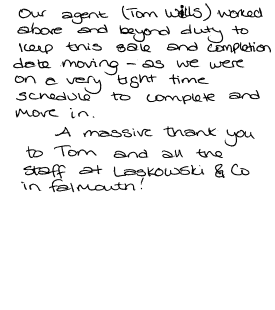 Our agent (Tom Wills) worked
above and beyond duty to
keep this sale and completion
date moving - as we were
on a very tight time
schedule to complete and
move in.
A massive thank you
to Tom and all the
staff at Laskowski & Co
in Falmouth!